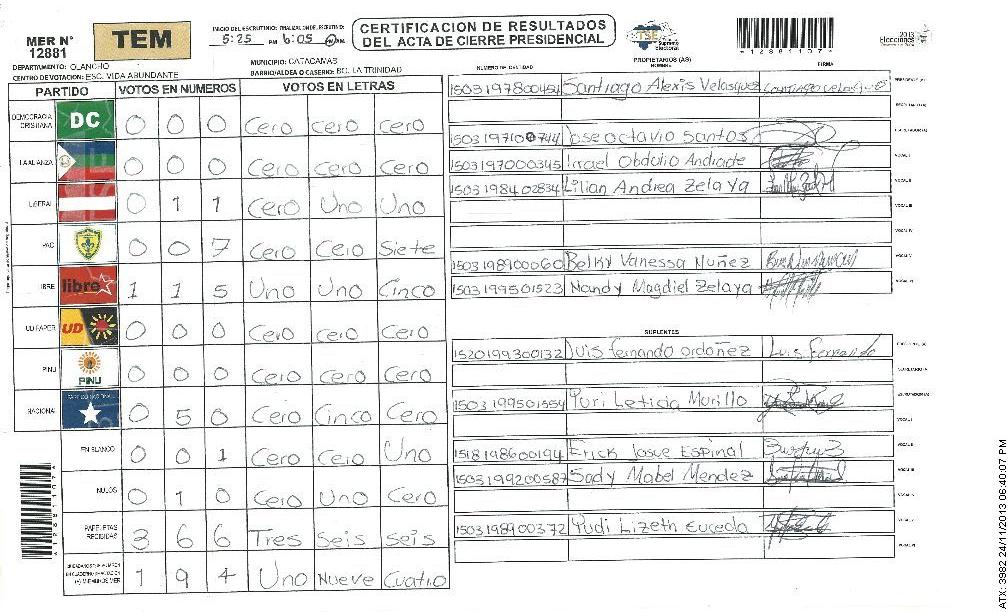 MER N° 12881
TEM
INICIO DEL ESCRUTINIO: FINALIZACION DEL ESCRUTINIO:
5:25 PM 6:05 PM
CERTIFICACION DE RESULTADOS
DEL ACTA DE CIERRE PRESIDENCIAL
TSE
Supremo
Electoral
*12881107*
2013
Elecciones
DEPARTAMENTO: OLANCHO
MUNICIPIO: CATACAMAS
CENTRO DE VOTACION: ESC. VIDA ABUNDANTE
BARRIO/ALDEA O CASERIO: BO. LA TRINIDAD
PARTIDO VOTOS EN NUMEROS VOTOS EN LETRAS
DEMOCRACIA CRISTIANA DC 0 0 0 Cero cero cero
LA ALIANZA 0 0 0 Cero cero cero
LIBERAL 0 1 1 Cero Uno Uno
PAC 0 0 7 Cero Cero Siete
LIBRE libre 1 1 5 Uno Uno Cinco
UD FAPER UD 0 0 0 Cero Cero Cero
PINU PINU 0 0 0 Cero cero Cero
NACIONAL PARTIDO NACIONAL 0 5 0 Cero Cinco Cero
EN BLANCO 0 0 1 Cero Cero Uno
NULOS 0 1 0 Cero Uno Cero
PAPELETAS RECIBIDAS 3 6 6 Tres seis seis
1 9 4 Uno Nueve Cuatro
NUMERO DE IDENTIDAD PROPIETARIOS (AS) NOMBRE FIRMA
1503197800451 Santiago Alexis Velasquez
Jose octavio Santos
1503197000345 Israel Obdulio Andrade
1503198402834 Lilian Andrea Zelaya
1503198900060 Belky Vanessa Nuñez
1503199501523 Nandy Magdiel Zelaya
SUPLENTES
1520199300132 Luis fernando ordoñez Luis fernando
1503199501554 Yuri Leticia Murillo
1518198600194 Erick Josue Espinal
1503199200587 Sady Mabel Mendez
1503198900372 Yudi Lizeth Euceda
ATX: 3982 24/11/2013 06:40:07 PM